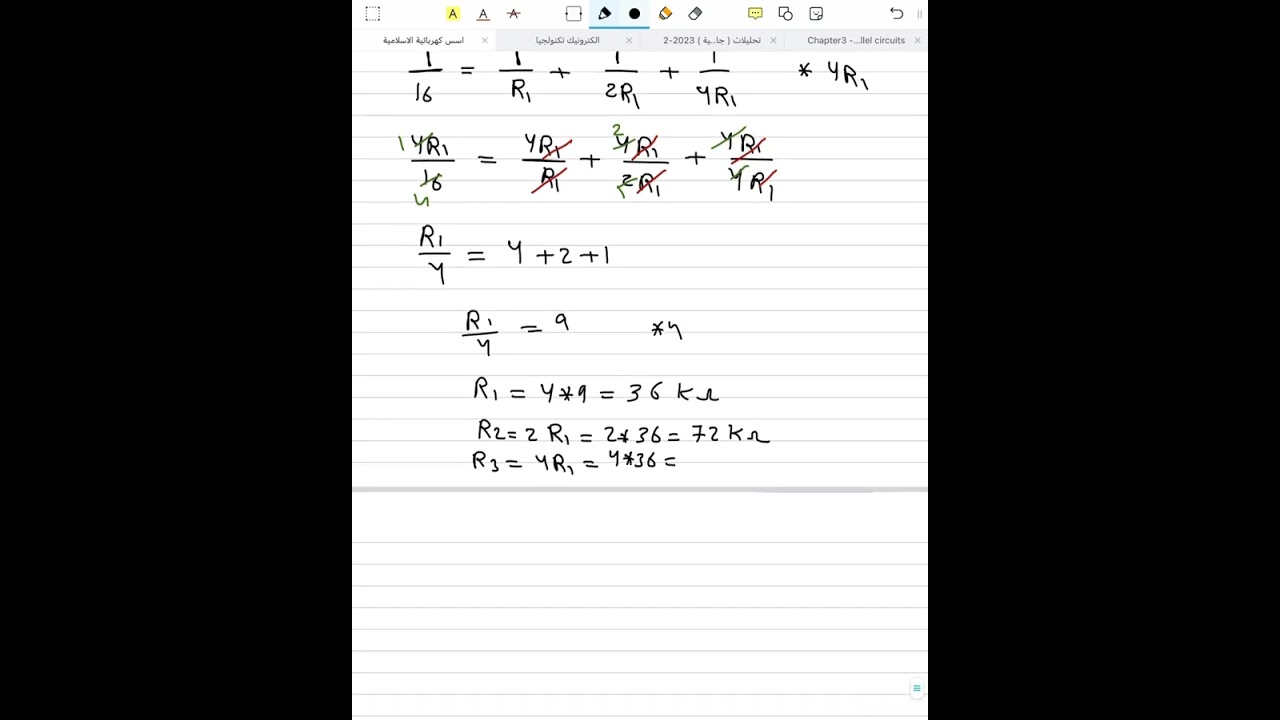 A A A
اسس كهربائية الاسلامية × الكترونيك تكنولجيا × تحليلات ( جا...ية ) 2023-2 × Chapter3 -...llel circuits ×
1/16 = 1/R1 + 1/2R1 + 1/4R1 * 4R1
1 4R1/16 4 = 4R1/R1 + 2 4R1/2R1 1 + 4R1/4R1
R1/4 = 4 + 2 + 1
R1/4 = 9 *4
R1 = 4*9 = 36 KΩ
R2 = 2 R1 = 2*36 = 72 KΩ
R3 = 4R1 = 4*36 =